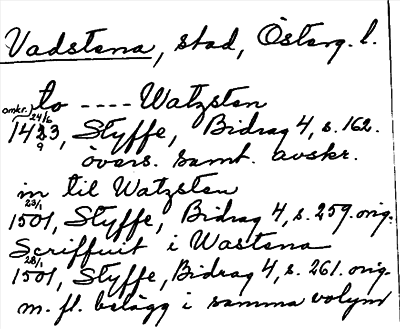 Vadstena, stad, Österg. l.
to ---- Watzsten
(omkr.) 24/6
1423, Styffe, Bidrag 4, s. 162.
9
övers. samt. avskr.
in til Watzsten
23/1
1501, Styffe, Bidrag 4, s. 259. orig.
Scriffuit i Wastena
28/1
1501, Styffe, Bidrag 4, s. 261. orig.
m. fl. belägg i samma volym